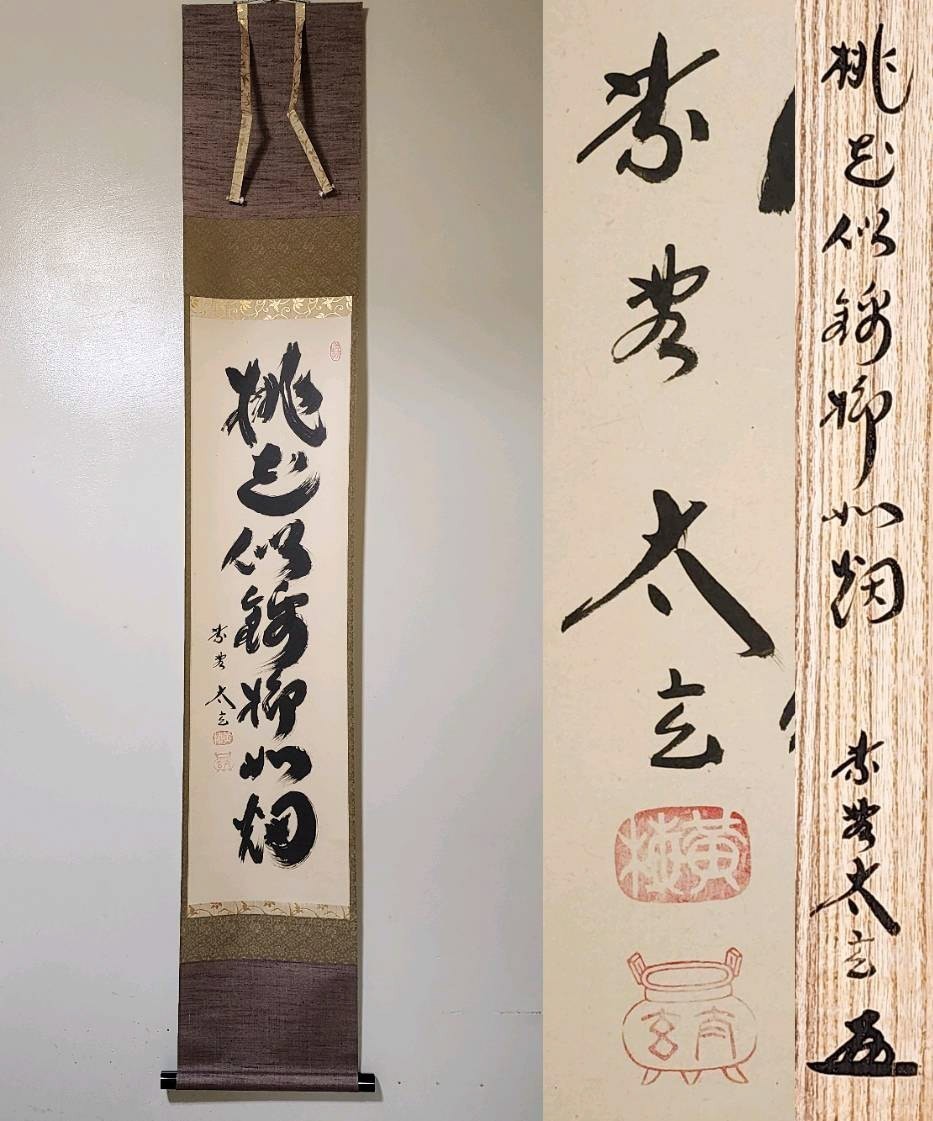 桃花似錦柳如烟
紫野 太玄
紫野 太玄
黄梅
太玄
桃花似錦柳如烟 紫野太玄